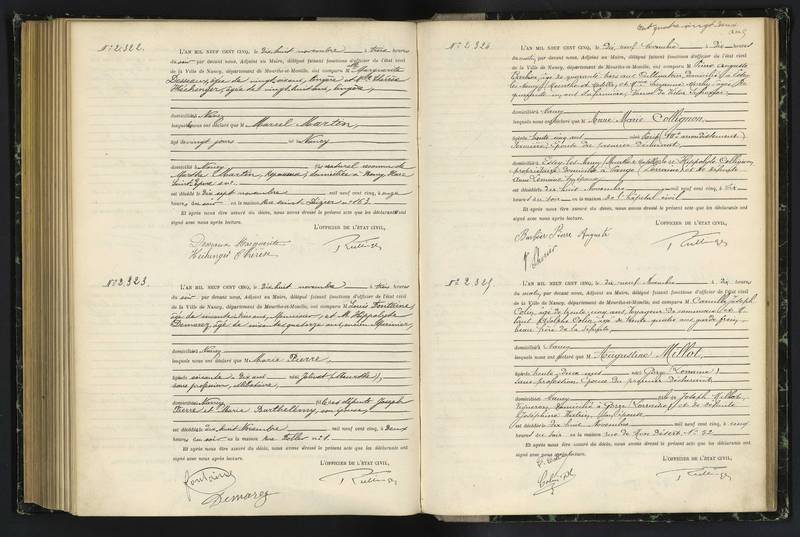 N° 2.322.
L'AN MIL NEUF CENT CINQ, le dix huit novembre à trois heures
du soir par devant nous, Adjoint au Maire, délégué faisant fonctions d'officier de l'état civil
de la Ville de Nancy, département de Meurthe-et-Moselle, ont comparu M Marguerite
âgée de vingt ans, lingère et Thérèse
Hechinger, âgée de vingt huit ans, lingère,
domiciliés Nancy
lesquels nous ont déclaré que M Marcel Martin,
âgé de vingt jours né Nancy
domicilié Nancy fils naturel reconnu de
Martin, à Nancy, Place
Saint Epvre
est décédé le dix sept novembre mil neuf cent cinq, à onze
heures du soir en la maison rue Saint Dizier n° 163.
Et après nous être assuré du décès, nous avons dressé le présent acte que les déclarants ont
signé avec nous après lecture.
L'OFFICIER DE L'ÉTAT CIVIL,
Marguerite
Hechinger Thérèse
N° 2.323.
L'AN MIL NEUF CENT CINQ, le dix huit novembre à trois heures
du soir par devant nous, Adjoint au Maire, délégué faisant fonctions d'officier de l'état civil
de la Ville de Nancy, département de Meurthe-et-Moselle, ont comparu M Louis Fontaine
âgé de ans, Menuisier, et M. Hippolyte
Demarez, âgé de soixante quatorze ans, ancien
domiciliés Nancy
lesquels nous ont déclaré que M Marie Pierre,
âgée de soixante dix ans née (Meurthe),
sans profession, célibataire,
domiciliée Nancy fille des défunts Joseph
Pierre et Marie Barthélemy, son épouse,
est décédée le dix huit Novembre mil neuf cent cinq, à deux
heures du soir en la maison rue n° 1.
Et après nous être assuré du décès, nous avons dressé le présent acte que les déclarants ont
signé avec nous après lecture.
L'OFFICIER DE L'ÉTAT CIVIL,
Fontaine
Demarez
cent quatre vingt deux
N° 2.324
L'AN MIL NEUF CENT CINQ, le dix neuf Novembre à dix heures
du matin, par devant nous, Adjoint au Maire, délégué faisant fonctions d'officier de l'état civil
de la Ville de Nancy, département de Meurthe-et-Moselle, ont comparu M Pierre Auguste
Barbier, âgé de quarante trois ans, Cultivateur, domicilié à Essey
les Nancy (Meurthe et Moselle), et
domiciliés Nancy
lesquels nous ont déclaré que M Anne Marie Collignon,
âgée de trente cinq ans née Paris arrondissement)
Epouse du premier déclarant,
domiciliée Essey les Nancy (Meurthe et Moselle) fille de Hippolyte Collignon,
propriétaire, domicilié à (Lorraine) et de défunte
est décédée le dix huit Novembre mil neuf cent cinq, à six
heures du soir en la maison de l'hôpital civil
Et après nous être assuré du décès, nous avons dressé le présent acte que les déclarants ont
signé avec nous après lecture.
L'OFFICIER DE L'ÉTAT CIVIL,
Barbier Pierre Auguste
N° 2.325
L'AN MIL NEUF CENT CINQ, le dix neuf Novembre à dix heures
du matin, par devant nous, Adjoint au Maire, délégué faisant fonctions d'officier de l'état civil
de la Ville de Nancy, département de Meurthe-et-Moselle, ont comparu M Camille Joseph
Colin, âgé de trente cinq ans, Voyageur de commerce, et
Colin, âgé de trente quatre ans, garde frein,
beau frère de la défunte,
domiciliés Nancy
lesquels nous ont déclaré que M Augustine Millot,
âgée de trente deux ans née Gorze (Lorraine)
sans profession épouse du premier déclarant,
domiciliée Nancy fille de Joseph Millot,
Vigneron, domicilié à Gorze (Lorraine) et de défunte
Joséphine son épouse
est décédée le dix huit Novembre mil neuf cent cinq, à cinq
heures du soir en la maison rue de n° 22
Et après nous être assuré du décès, nous avons dressé le présent acte que les déclarants ont
signé avec nous après lecture.
L'OFFICIER DE L'ÉTAT CIVIL,